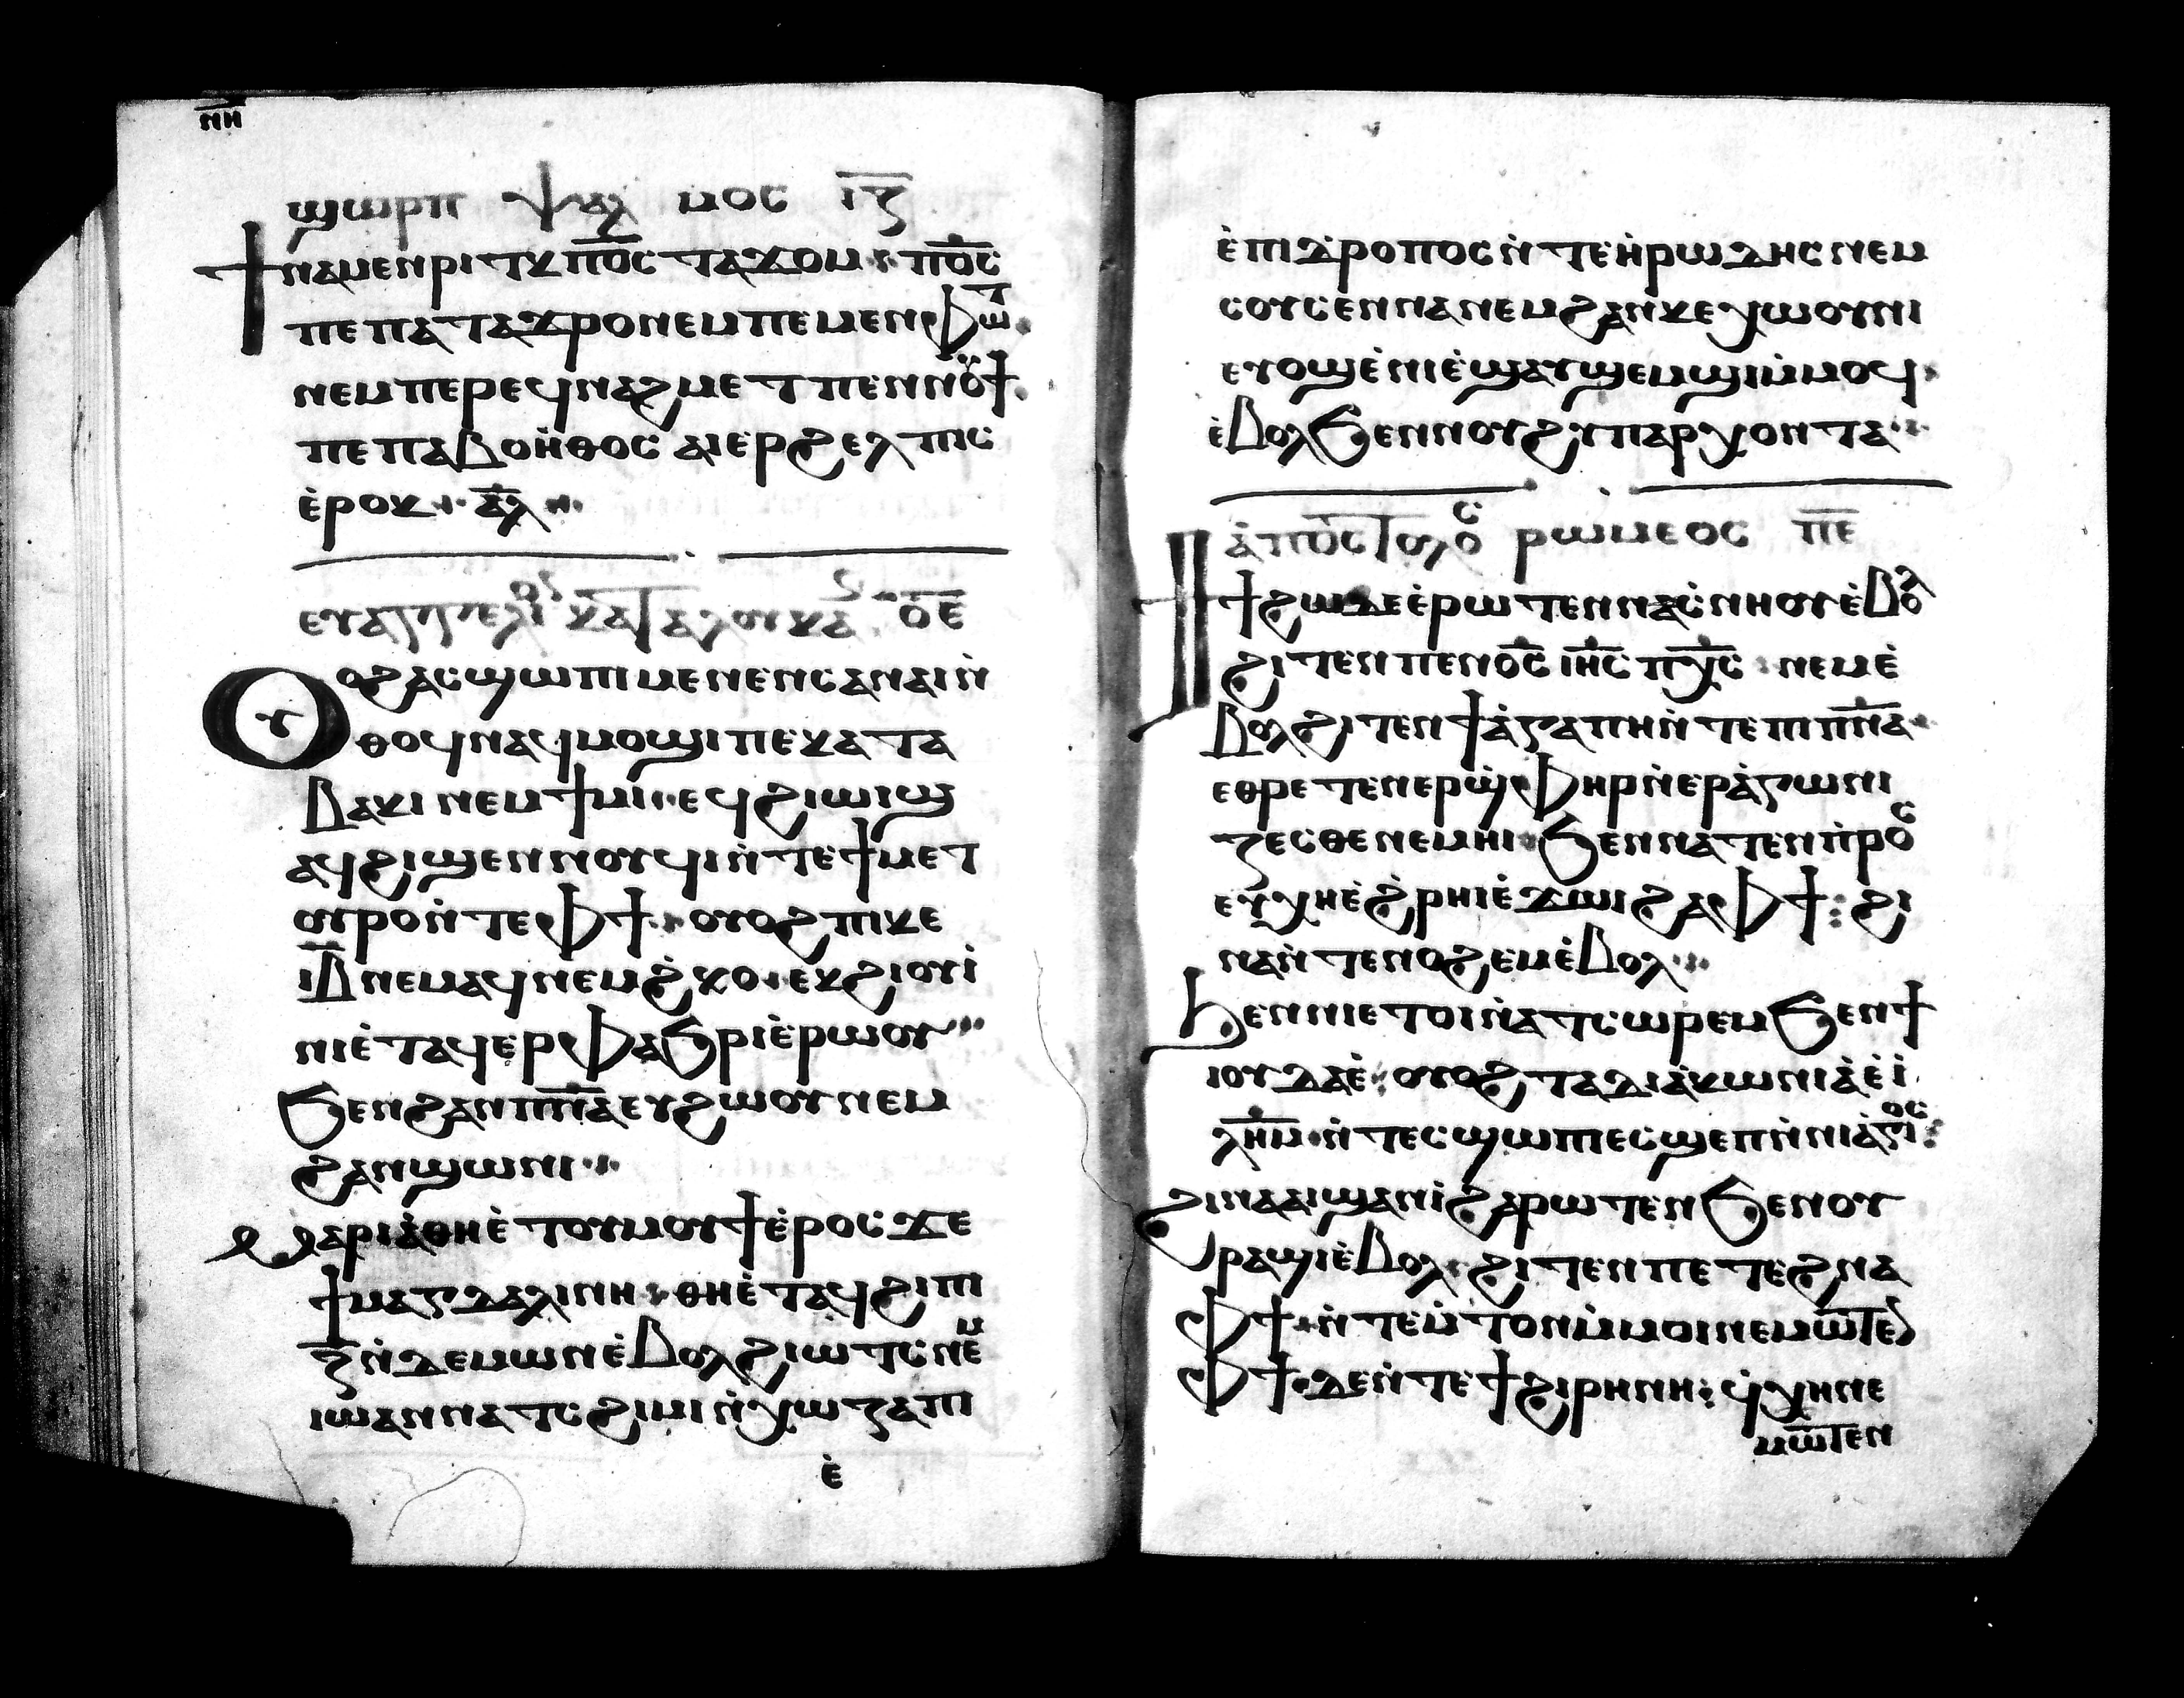 ⲛⲏ
ϣⲱⲣⲡ ⲯⲁⲗⲙⲟⲥ ⲓⲍ
ϯⲛⲁⲙⲉⲛⲣⲓⲧⲕ ⲡ̅ⲟ̅ⲥ̅ ⲧⲁϫⲟⲙ ⁘ ⲡ̅ⲟ̅ⲥ̅
ⲡⲉ ⲡⲁⲧⲁϫⲣⲟ ⲛⲉⲙ ⲡⲉ ⲙⲉⲛⲫⲱⲧ
ⲛⲉⲙ ⲡⲉⲣⲉϥⲛⲁϩⲙⲉⲧ ⲡⲉⲛⲛⲟⲩϯ
ⲡⲉ ⲡⲁⲃⲟⲏ̀ⲑⲟⲥ ⲁⲓⲉⲣϩⲉⲗⲡⲓⲥ
ⲉ̀ⲣⲟⲕ ⁘ ⲁ̅ⲗ̅ ⁘
ⲉⲩⲁⲅⲅⲉⲗⲓⲟⲛ ⲕⲁⲧⲁ ⲗⲟⲩⲕⲁⲥ ⲟ̅ⲉ̅
Ⲟⲩⲟϩ ⲁⲥϣⲱⲡⲓ ⲙⲉⲛⲉⲛⲥⲁ ⲛⲁⲓ ⲛ̀
ⲑⲟϥ ⲛⲁϥⲙⲟϣⲓ ⲡⲉ ⲕⲁⲧⲁ
ⲃⲁⲕⲓ ⲛⲉⲙ ϯⲙⲓ ⁘ ⲉϥϩⲓⲱⲓϣ
ⲁϥϩⲓϣⲉⲛⲛⲟⲩϥⲓ ⲛ̀ⲧⲉ ϯⲙⲉⲧ
ⲟⲩⲣⲟ ⲛ̀ⲧⲉ ⲫϯ ⁘ ⲟⲩⲟϩ ⲡⲓⲕⲉ
ⲓ̅ⲃ̅ ⲛⲉⲙⲁϥ ⲛⲉⲙ ϩ̀ⲕⲟ ⁘ ⲉⲕϩⲓⲟⲩⲓ̀
ⲛⲓⲉ̀ⲧⲁϥⲉⲣⲫⲁϧⲣⲓ ⲉ̀ⲣⲱⲟⲩ ⁘
ϧⲉⲛ ϩⲁⲛⲡ̅ⲛ̅ⲁ̅ ⲉⲩϩⲱⲟⲩ ⲛⲉⲙ
ϩⲁⲛϣⲱⲛⲓ ⁘
Ⲙⲁⲣⲓⲁ̀ ⲑⲏⲉ̀ⲧⲟⲩⲙⲟⲩϯ ⲉ̀ⲣⲟⲥ ϫⲉ
ϯⲙⲁⲅⲇⲁⲗⲓⲛⲏ ⁘ ⲑⲏⲉ̀ⲧⲁϥϩⲓ ⲡⲓ
ⲍ̅ ⲛ̀ⲇⲉⲙⲱⲛ ⲉ̀ⲃⲟⲗ ϩⲓⲱⲧⲥ ⲛⲉⲙ
ⲓⲱ̀ⲁⲛⲛⲁ ⲧⲥϩⲓⲙⲓ ⲛ̀ⲭⲱⲍⲁ ⲡⲓ
ⲉ̀
ⲉ̀ⲡⲓⲇ̀ⲣⲟⲡⲟⲥ ⲛ̀ⲧⲉ ⲏ̀ⲣⲱⲇⲏⲥ ⲛⲉⲙ
ⲥⲟⲩⲥⲉⲛⲛⲁ ⲛⲉⲙ ϩⲁⲛⲕⲉⲭⲱⲟⲩⲛⲓ
ⲉⲩⲟϣ ⲉ̀ⲛⲓⲉ̀ϣⲁⲩϣⲉⲙϣⲓ ⲙ̀ⲙⲟϥ ⁘
ⲉ̀ⲃⲟⲗ ϧⲉⲛ ⲛⲟⲩϩⲩⲡⲁⲣⲭⲟⲛⲧⲁ ⁘
ⲁ̀ⲡⲟⲥⲧⲟⲗⲟⲥ ⲣⲱⲙⲉⲟⲥ ⲡ̅ⲉ̅
ϯϯϩⲱ ⲇⲉ ⲉ̀ⲣⲱⲧⲉⲛ ⲛⲁⲥ̀ⲛⲏⲟⲩ ⲉ̀ⲃⲟⲗ
ϩⲓⲧⲉⲛ ⲡⲉⲛⲟ̅ⲥ̅ ⲓ̅ⲏ̅ⲥ̅ ⲡ̅ⲭ̅ⲥ̅ ⁘ ⲛⲉⲙ ⲉ̀
ⲃⲟⲗ ϩⲓⲧⲉⲛ ϯⲁ̀ⲅⲁⲡⲏ ⲛ̀ⲧⲉ ⲡⲓⲡ̅ⲛ̅ⲁ̅ ⁘
ⲉⲑⲣⲉⲧⲉⲛⲉⲣϣ̀ⲫⲏⲣ ⲛ̀ⲉⲣⲁ̀ⲅⲱⲛⲓ
ⲍⲉⲥⲑⲉ ⲛⲉⲙⲏⲓ ⁘ ϧⲉⲛ ⲛⲁⲧⲉⲛⲡ̀ⲣⲟⲥ
ⲉⲩⲭⲏ ⲉ̀ϩ̀ⲣⲏⲓ ⲉ̀ϫⲱⲓ ϩⲁ ⲫϯ ⁘ ϩⲓ
ⲛⲁ ⲛ̀ⲧⲉⲛⲟϩⲉⲙ ⲉ̀ⲃⲟⲗ ⁘
Ϧⲉⲛ ⲛⲓⲉⲧⲟⲓ ⲛ̀ⲁⲧⲥⲱⲣⲉⲙ ϧⲉⲛ ϯ
ⲓⲟⲩⲇⲁⲉ̀ ⁘ ⲟⲩⲟϩ ⲧⲁⲇⲓⲁ̀ⲕⲱⲛⲓⲁ̀ ⲉ̀ⲓ̀
ⲗ̅ⲏ̅ⲙ̅ ⲛ̀ⲧⲉⲥϣⲱⲡⲓ ⲉⲥϣⲉⲡ ⲛ̀ⲛⲓⲁ̀ⲅⲓⲟⲥ ⁘
ϩⲓⲛⲁ ⲁⲓϣⲁⲛⲓ̀ ϩⲁⲣⲱⲧⲉⲛ ϧⲉⲛ ⲟⲩ
ⲣⲁϣⲓ ⲉ̀ⲃⲟⲗ ⁘ ϩⲓⲧⲉⲛ ⲡⲉⲧⲉϩⲛⲁ
ⲫϯ ⁘ ⲛ̀ⲧⲉⲙ̀ⲧⲟⲛ ⲙ̀ⲙⲟⲓ ⲛⲉⲙⲱⲧⲉⲛ
ⲫϯ ⁘ ⲇⲉ ⲛ̀ⲧⲉ ϯϩⲓⲣⲏⲛⲏ ⁘ ϥ̀ⲭⲏ ⲛⲉ
ⲙⲱⲧⲉⲛ